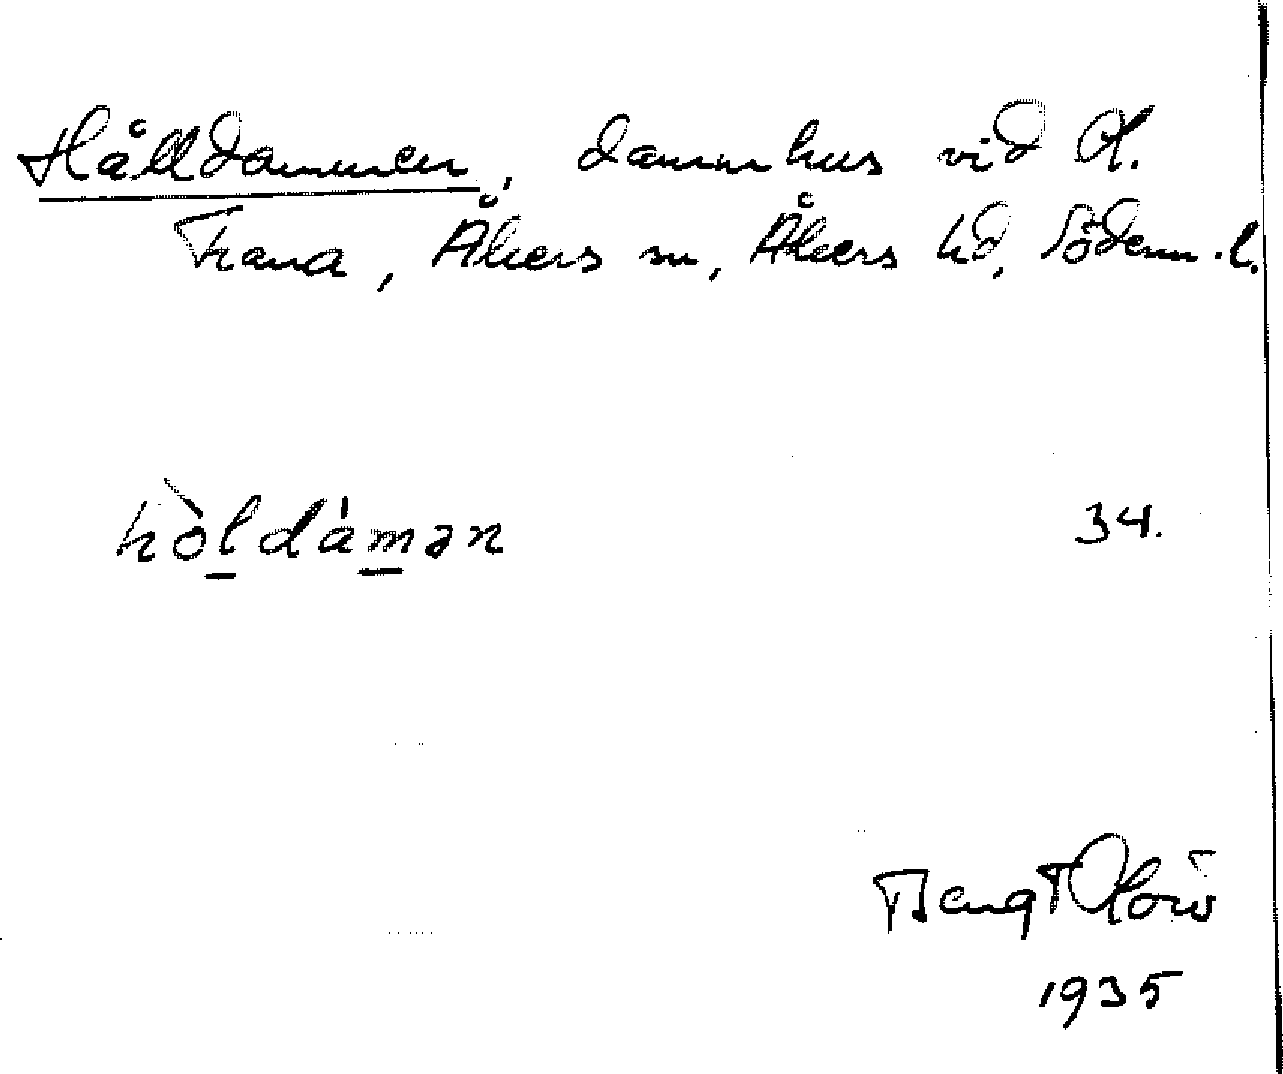 Hålldammen, dammhus vid Ol.
Trana, Åkers sn, Åkers hd, Söderm. l.
hòldámən 34.
Bengt
1935